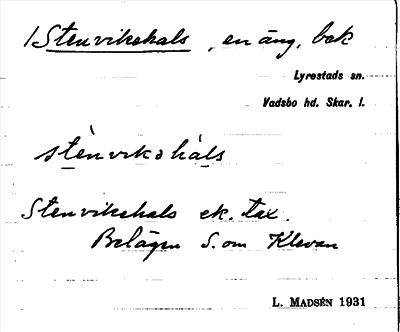 1 Stenvikshals, en äng, bek
Lyrestads sn.
Vadsbo hd. Skar. l.
stènvikshàls
Stenvikshals ek. tax.
Belägen S. om Klevan
L. MADSÉN 1931